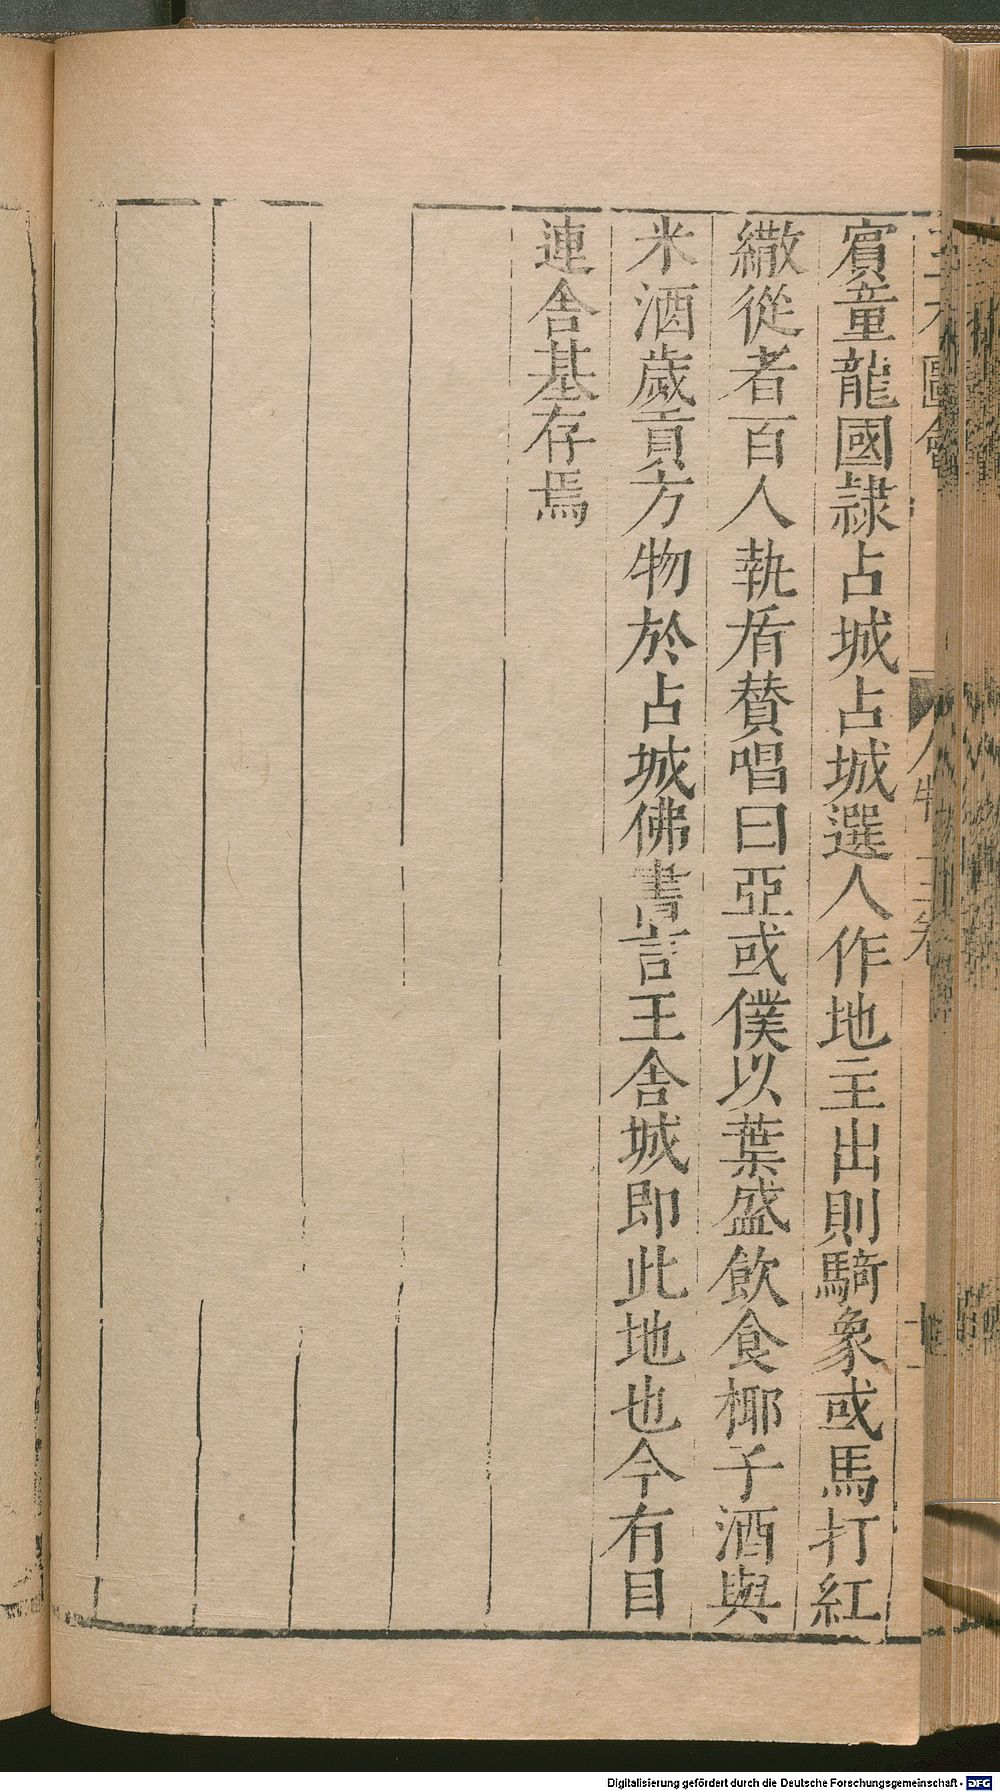 賓童龍國隷占城占城選人作地主出則騎象或馬打紅
繖從者百人執盾賛唱曰亞或僕以葉盛飲食椰子酒與
米酒歲貢方物於占城佛書言王舎城即此地也今有目
連舎基存焉
Digitalisierung gefördert durch die Deutsche Forschungsgemeinschaft - DFG